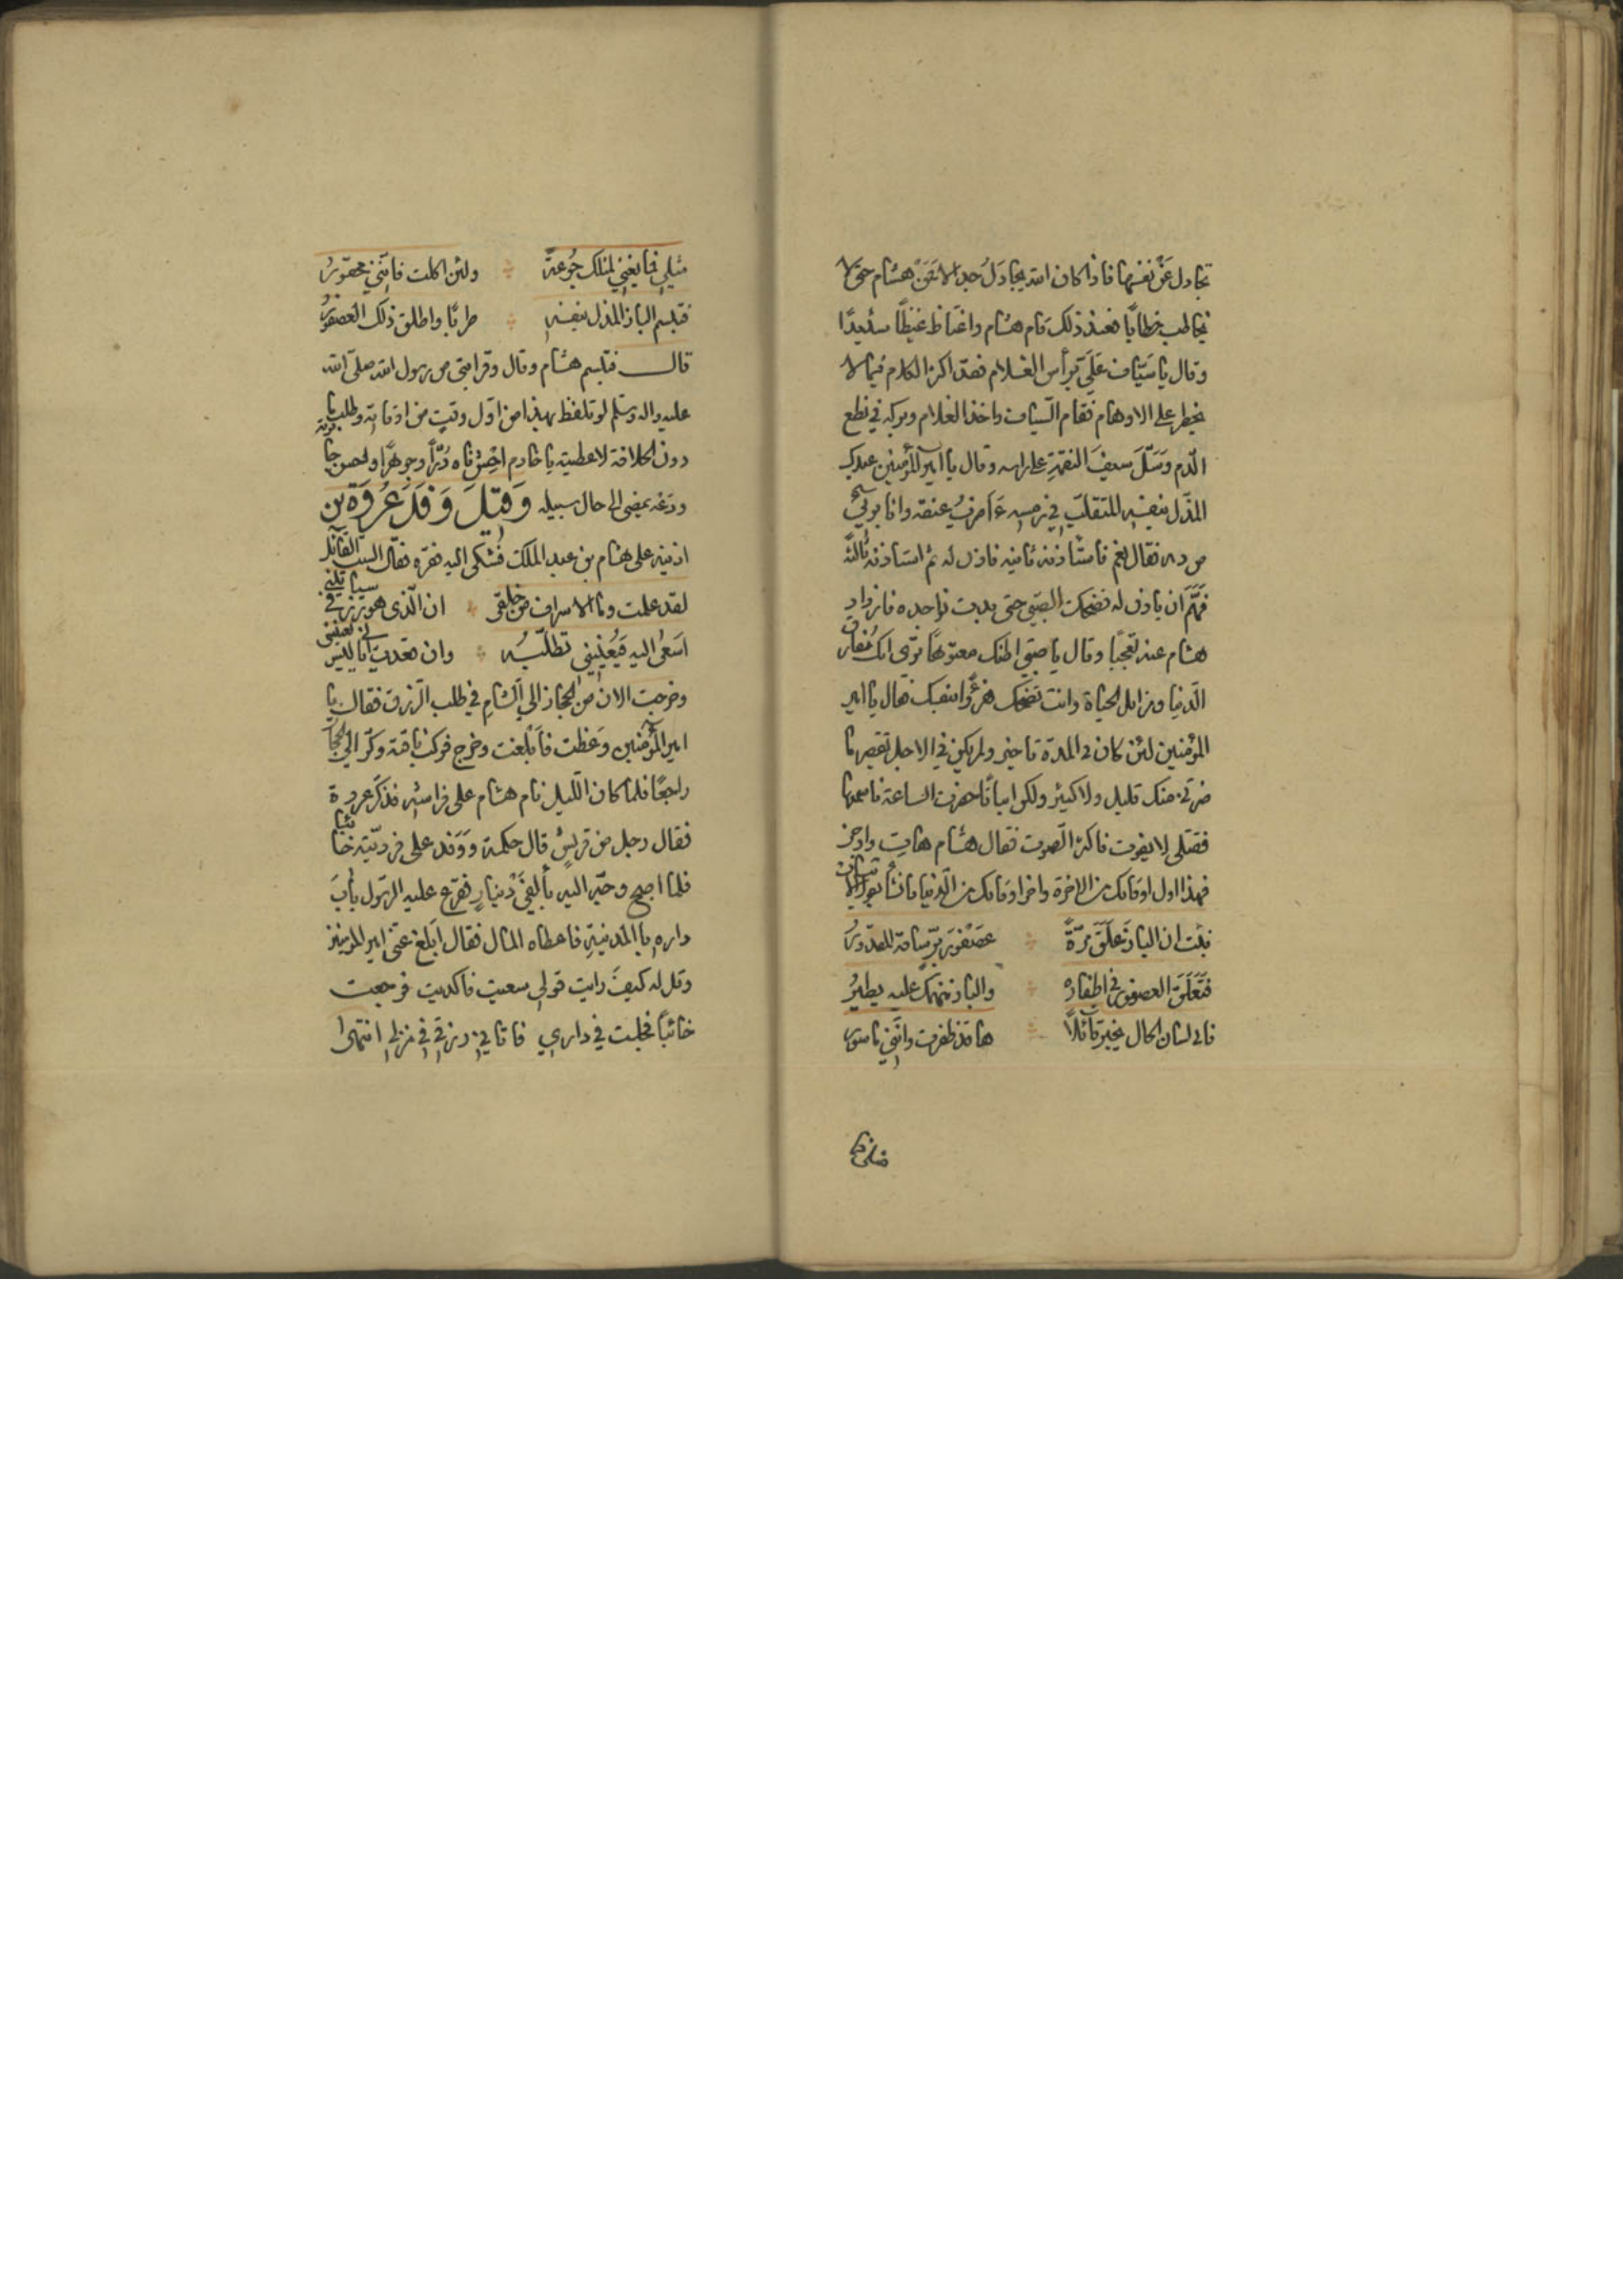 تجادل عَنْ نفسها فاذا كان الله يجادَلُ جدالا فَمَنْ هشام حتى لا
يخاطب خطابًا فعند ذلك قام هشام واغتاظ غيظًا شديدًا
وقال يا سَيّاف عَلَيّ برأس الغلام فقد اكثر الكلام فيما لا
يخطر على الاوهام فقام السّياف واخذ الغلام وبركه في نطع
الدّم وَسَلّ سيفَ النقمةِ على راسه وقال يا امير المؤمنين عبدك
المذّل بنفسه المتقلّب في رمسه ءَاَضربُ عنقه وانا برئ
من دمه فقال نعم فاستأذنه ثانيه فاذن له ثم استاذنه ثالثةً
فَهَمَّ ان ياذن له فضحك الصبي حتى بدت نواجده فازداد
هشام عند تعجبًا وقال يا صبي اظنك معتوهًا ترى انك مُفارق
الدّنيا ومزايل الحياة وانت تضحك هزءًوا بنفسك فقال يا امير
المؤمنين لئن كان في المدّة تاخير ولم يكن في الاجل تقصير ما
ضرني منك قليل ولا كثير ولكن ابياتًا حضرت الساعة فاسمعها
فقتلي لا يفوت فاكثر الصموت فقال هشام هاتِ واوجز
فهذا اول اوقاتك من الاخرة واخر اوقاتك من الدّنيا فانشأ يقول الابيات
نبئت ان الباز عَلَقَ مرّةً عصفورَ برّ ساقه المقدورُ
فتَعَلّق العصفور في اظفاره والباز منهمك عليه يطيرُ
فاتى لسان الحال يخبر قائلاً ها قد ظفرت وانّني ماسور
مثلي فما
مثلي فما يغني لمثلك جُوعةً ولئن اكلت فانّني محقورُ
فتبسم الباز المذل بنفسه طربًا واطلق ذلك العصفورُ
قال فتبسم هشام وقال وقرابتي من رسول الله صلى الله
عليه واله وسلم لو تلفظ بهذا من اوّل وقتٍ من اوقاته وطلب ما
دون الخلافة لاعطيته يا خادم احْش فاه دُرّاً وجوهرًا واحسن جائزته
ودَعْه يمضي الى حال سبيله وَقيلَ وَفَدَ عُرْوَة بن
اذينه على هشام بن عبد الملك فشكى اليه فقره فقال الست القائل
لقد علمت وما الاسراف من خلقي ان الّذي هو رزقي سياتيني
اسَعى اليه فيُعْيِيني تطلّبُه وان قعدت اتاني ليس يعنيني
وخرجت الان من الحجاز الي الشام في طلب الرّزق فقال يا
امير المؤمنين وَعظت فاَبْلغت وخرج فركب ناقته وكرّ الي الحجاز
راجعًا فلما كان اللّيل نام هشام على فراشه فذكر عروة
فقال رجل من قريشٍ قال حكمة وَوَفد على فرديّته خائبا
فلما اصبح وجّه اليه بألفَيْ دينارٍ فقرَع عليه الرسول بابَ
داره بالمدينة فاعطاه المال فقال اَبلغ عنّي امير المومنين
وقل له كيفَ رايت قولي سعيت فاكديت فرجعت
خائبًا فجلست في داري فاتاني رزقي في منزلي انتهى